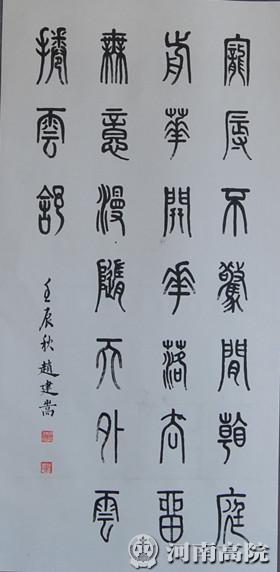 寵辱不驚閒看庭
前華開華落去留
無意漫隨天外雲
捲雲舒
壬辰秋趙建嵩
河南高院